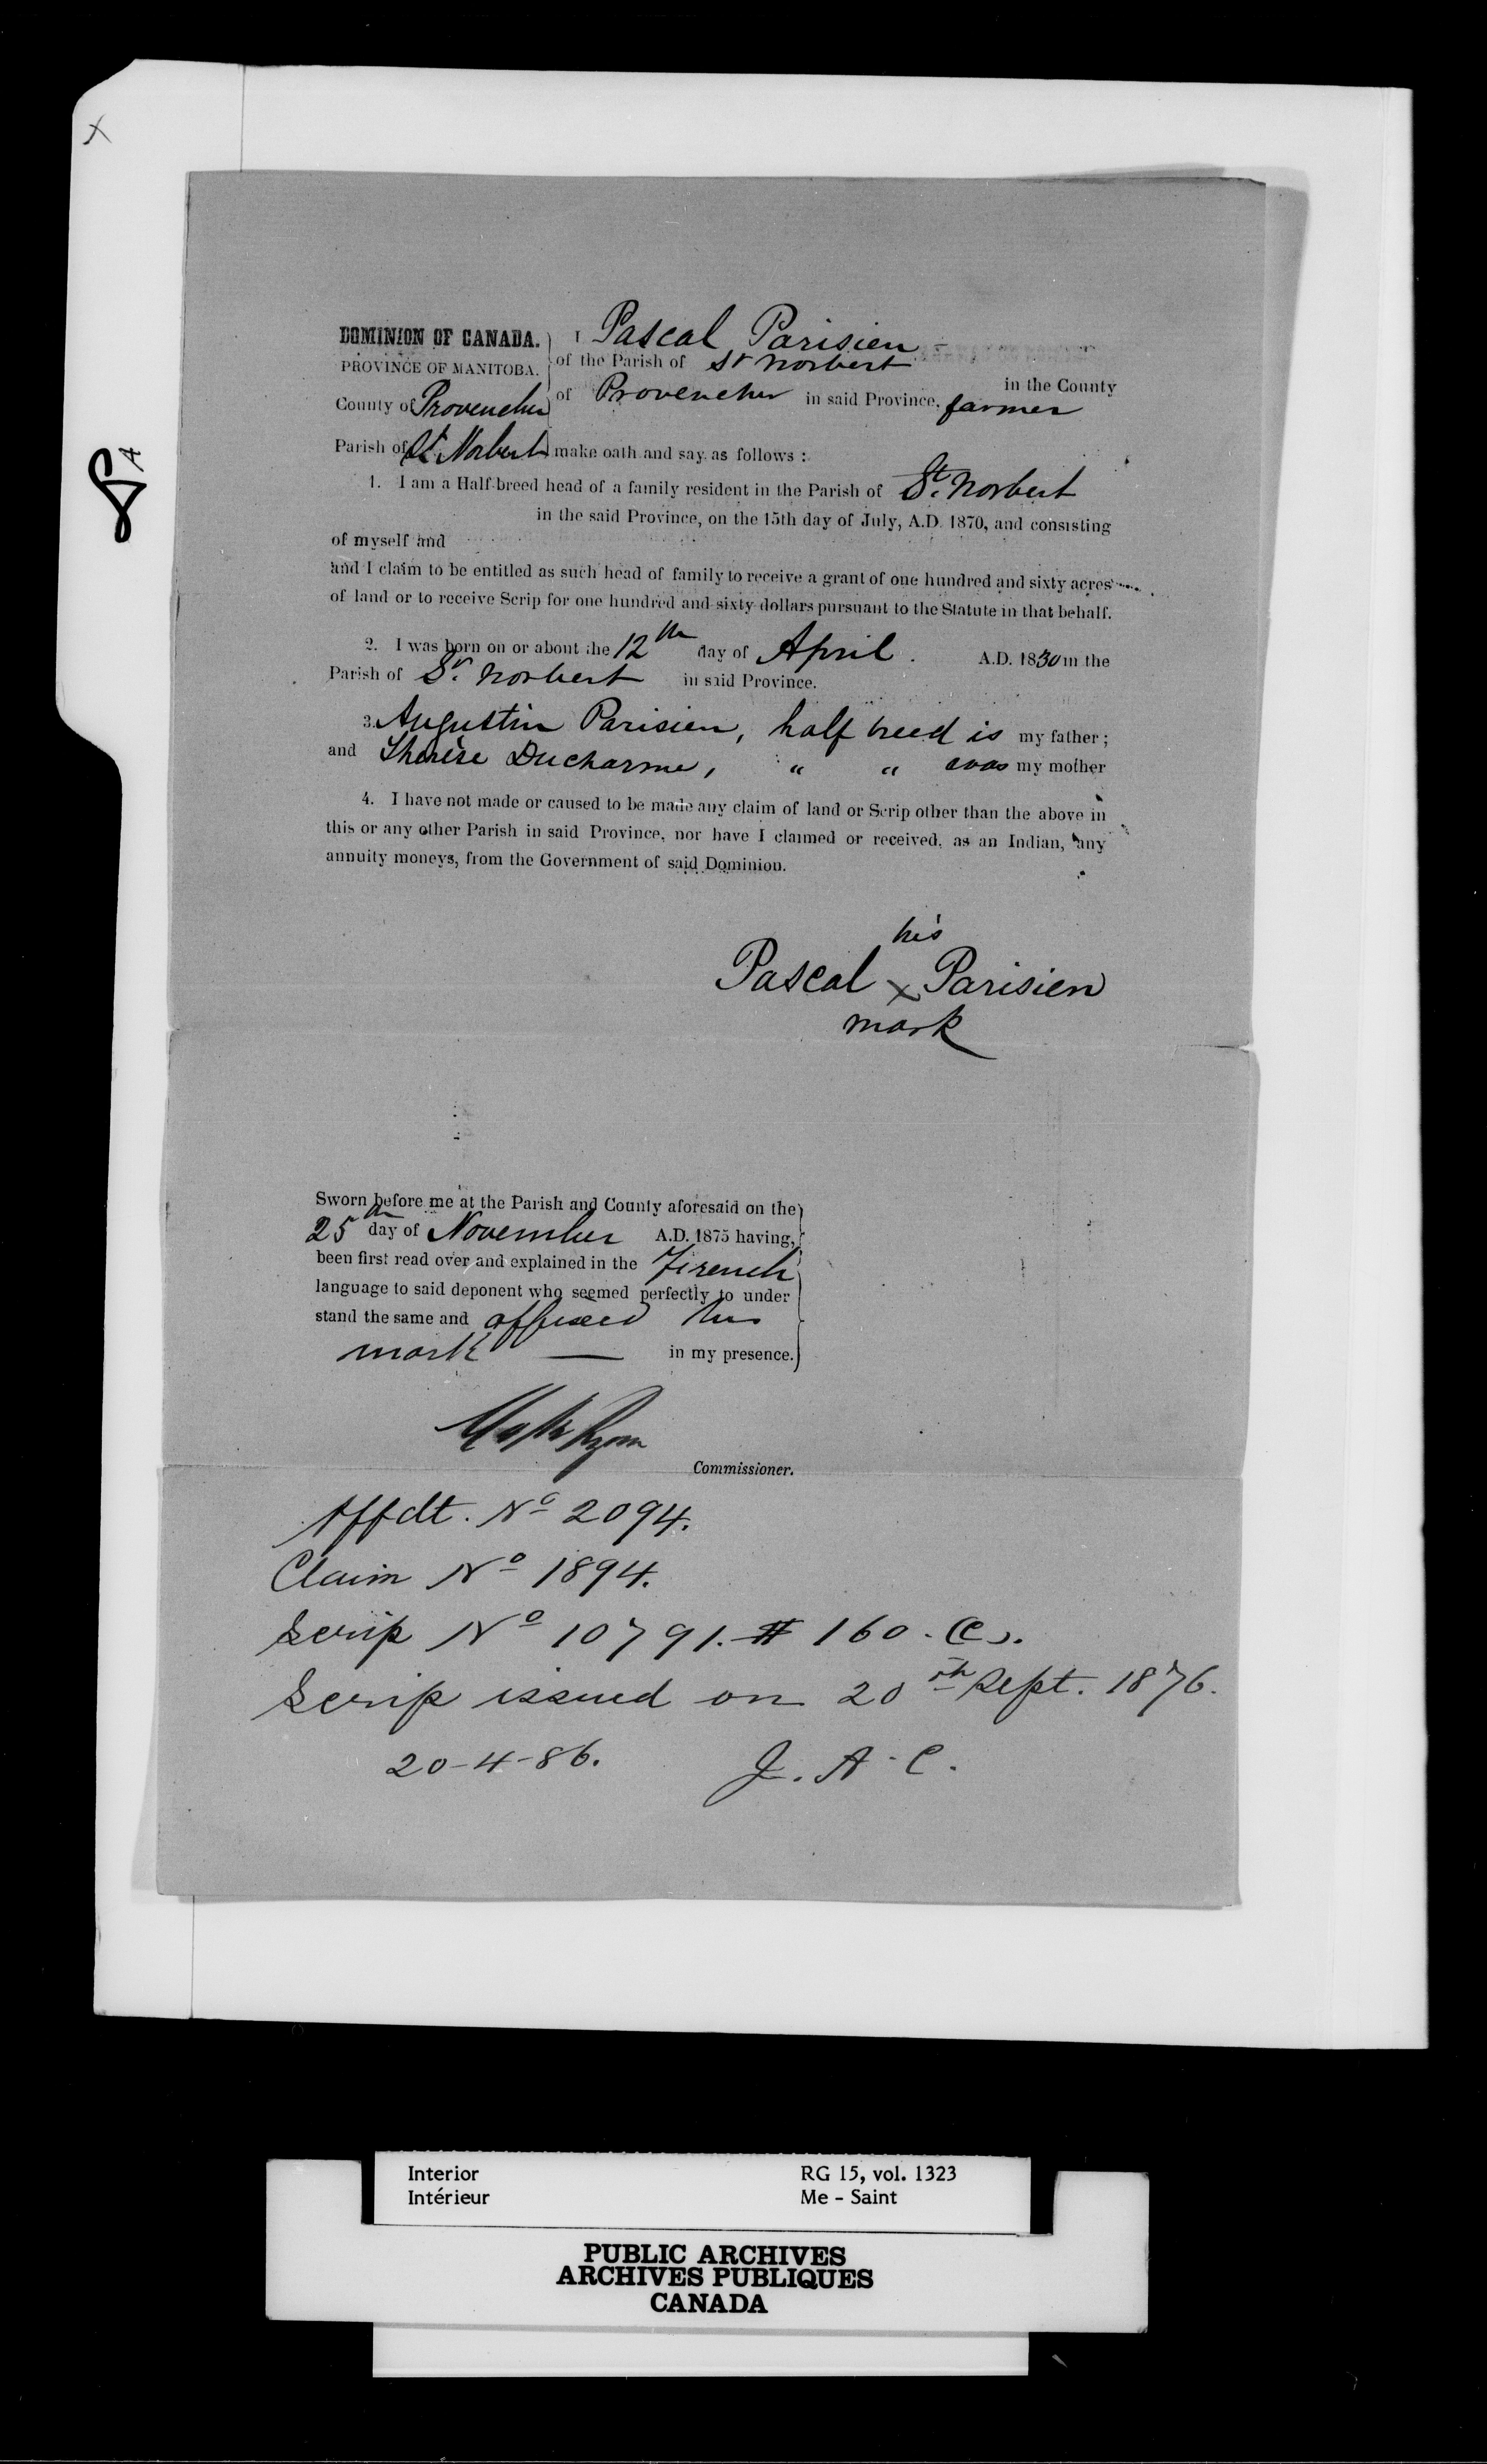 X
DOMINION OF CANADA. I Pascal Parisien
PROVINCE OF MANITOBA. of the Parish of St Norbert in the County
County of Provencher of Provencher in said Province, farmer
Parish of St. Norbert make oath and say as follows :
1. I am a Half-breed head of a family resident in the Parish of St. Norbert
in the said Province, on the 15th day of July, A.D. 1870, and consisting
of myself and
and I claim to be entitled as such head of family to receive a grant of one hundred and sixty acres
of land or to receive Scrip for one hundred and sixty dollars pursuant to the Statute in that behalf.
2. I was born on or about the 12th day of April. A.D. 1830 in the
Parish of St. Norbert in said Province.
3. Augustin Parisien, half breed is my father;
and Thérèse Ducharme, " " was my mother
4. I have not made or caused to be made any claim of land or Scrip other than the above in
this or any other Parish in said Province, nor have I claimed or received, as an Indian, any
annuity moneys, from the Government of said Dominion.
his
Pascal X Parisien
mark
Sworn before me at the Parish and County aforesaid on the
25th day of November A.D. 1875 having,
been first read over and explained in the French
language to said deponent who seemed perfectly to under
stand the same and affixed his
mark — in my presence.
Commissioner.
Affdt. No 2094.
Claim No 1894.
Scrip No 10791. $ 160.
Scrip issued on 20th Sept. 1876.
20-4-86. J. A. C.
Interior RG 15, vol. 1323
Intérieur Me - Saint
PUBLIC ARCHIVES
ARCHIVES PUBLIQUES
CANADA